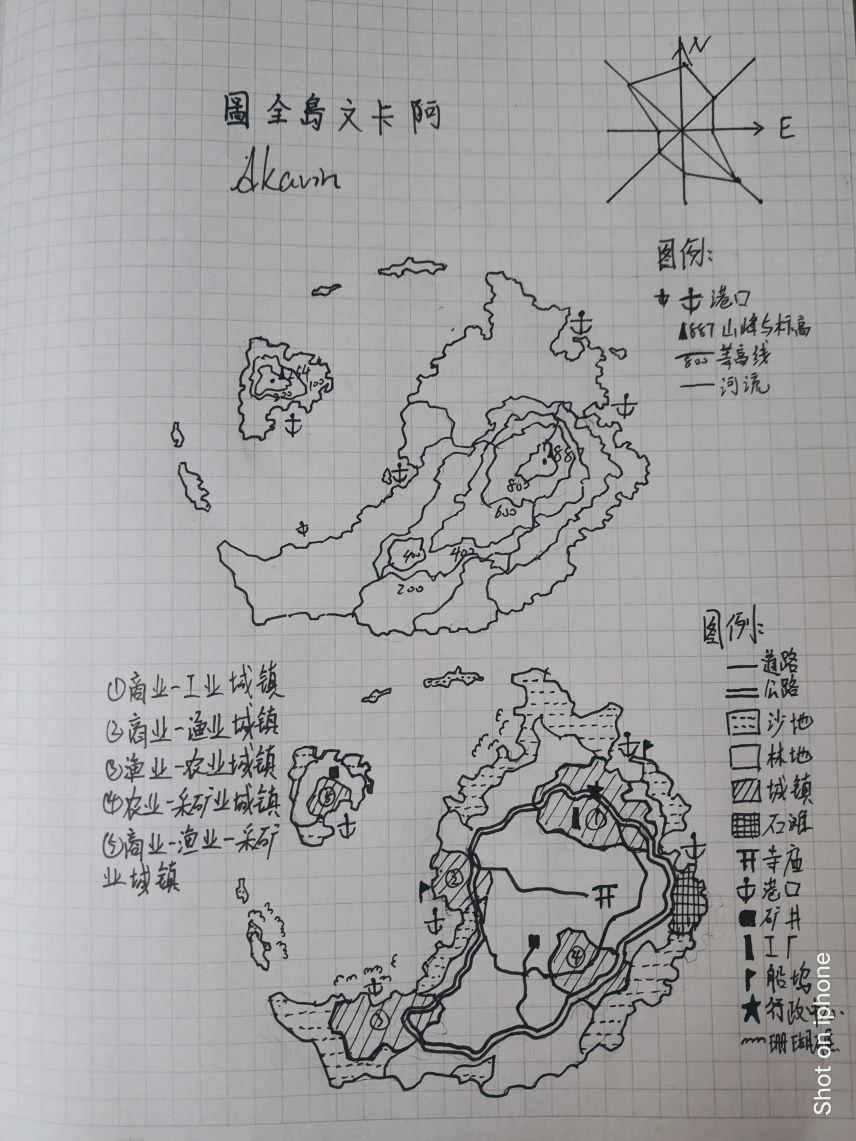 圖全島文卡阿
Akavin
N
E
图例:
港口
1887 山峰与标高
800 等高线
河流
264
200
100
1887
800
600
400
400
200
图例:
道路
公路
沙地
林地
城镇
石滩
寺庙
港口
矿井
工厂
船坞
行政中心
珊瑚礁
①商业-工业城镇
②商业-渔业城镇
③渔业-农业城镇
④农业-采矿业城镇
⑤商业-渔业-采矿
业城镇
①
②
③
④
⑤
Shot on iphone